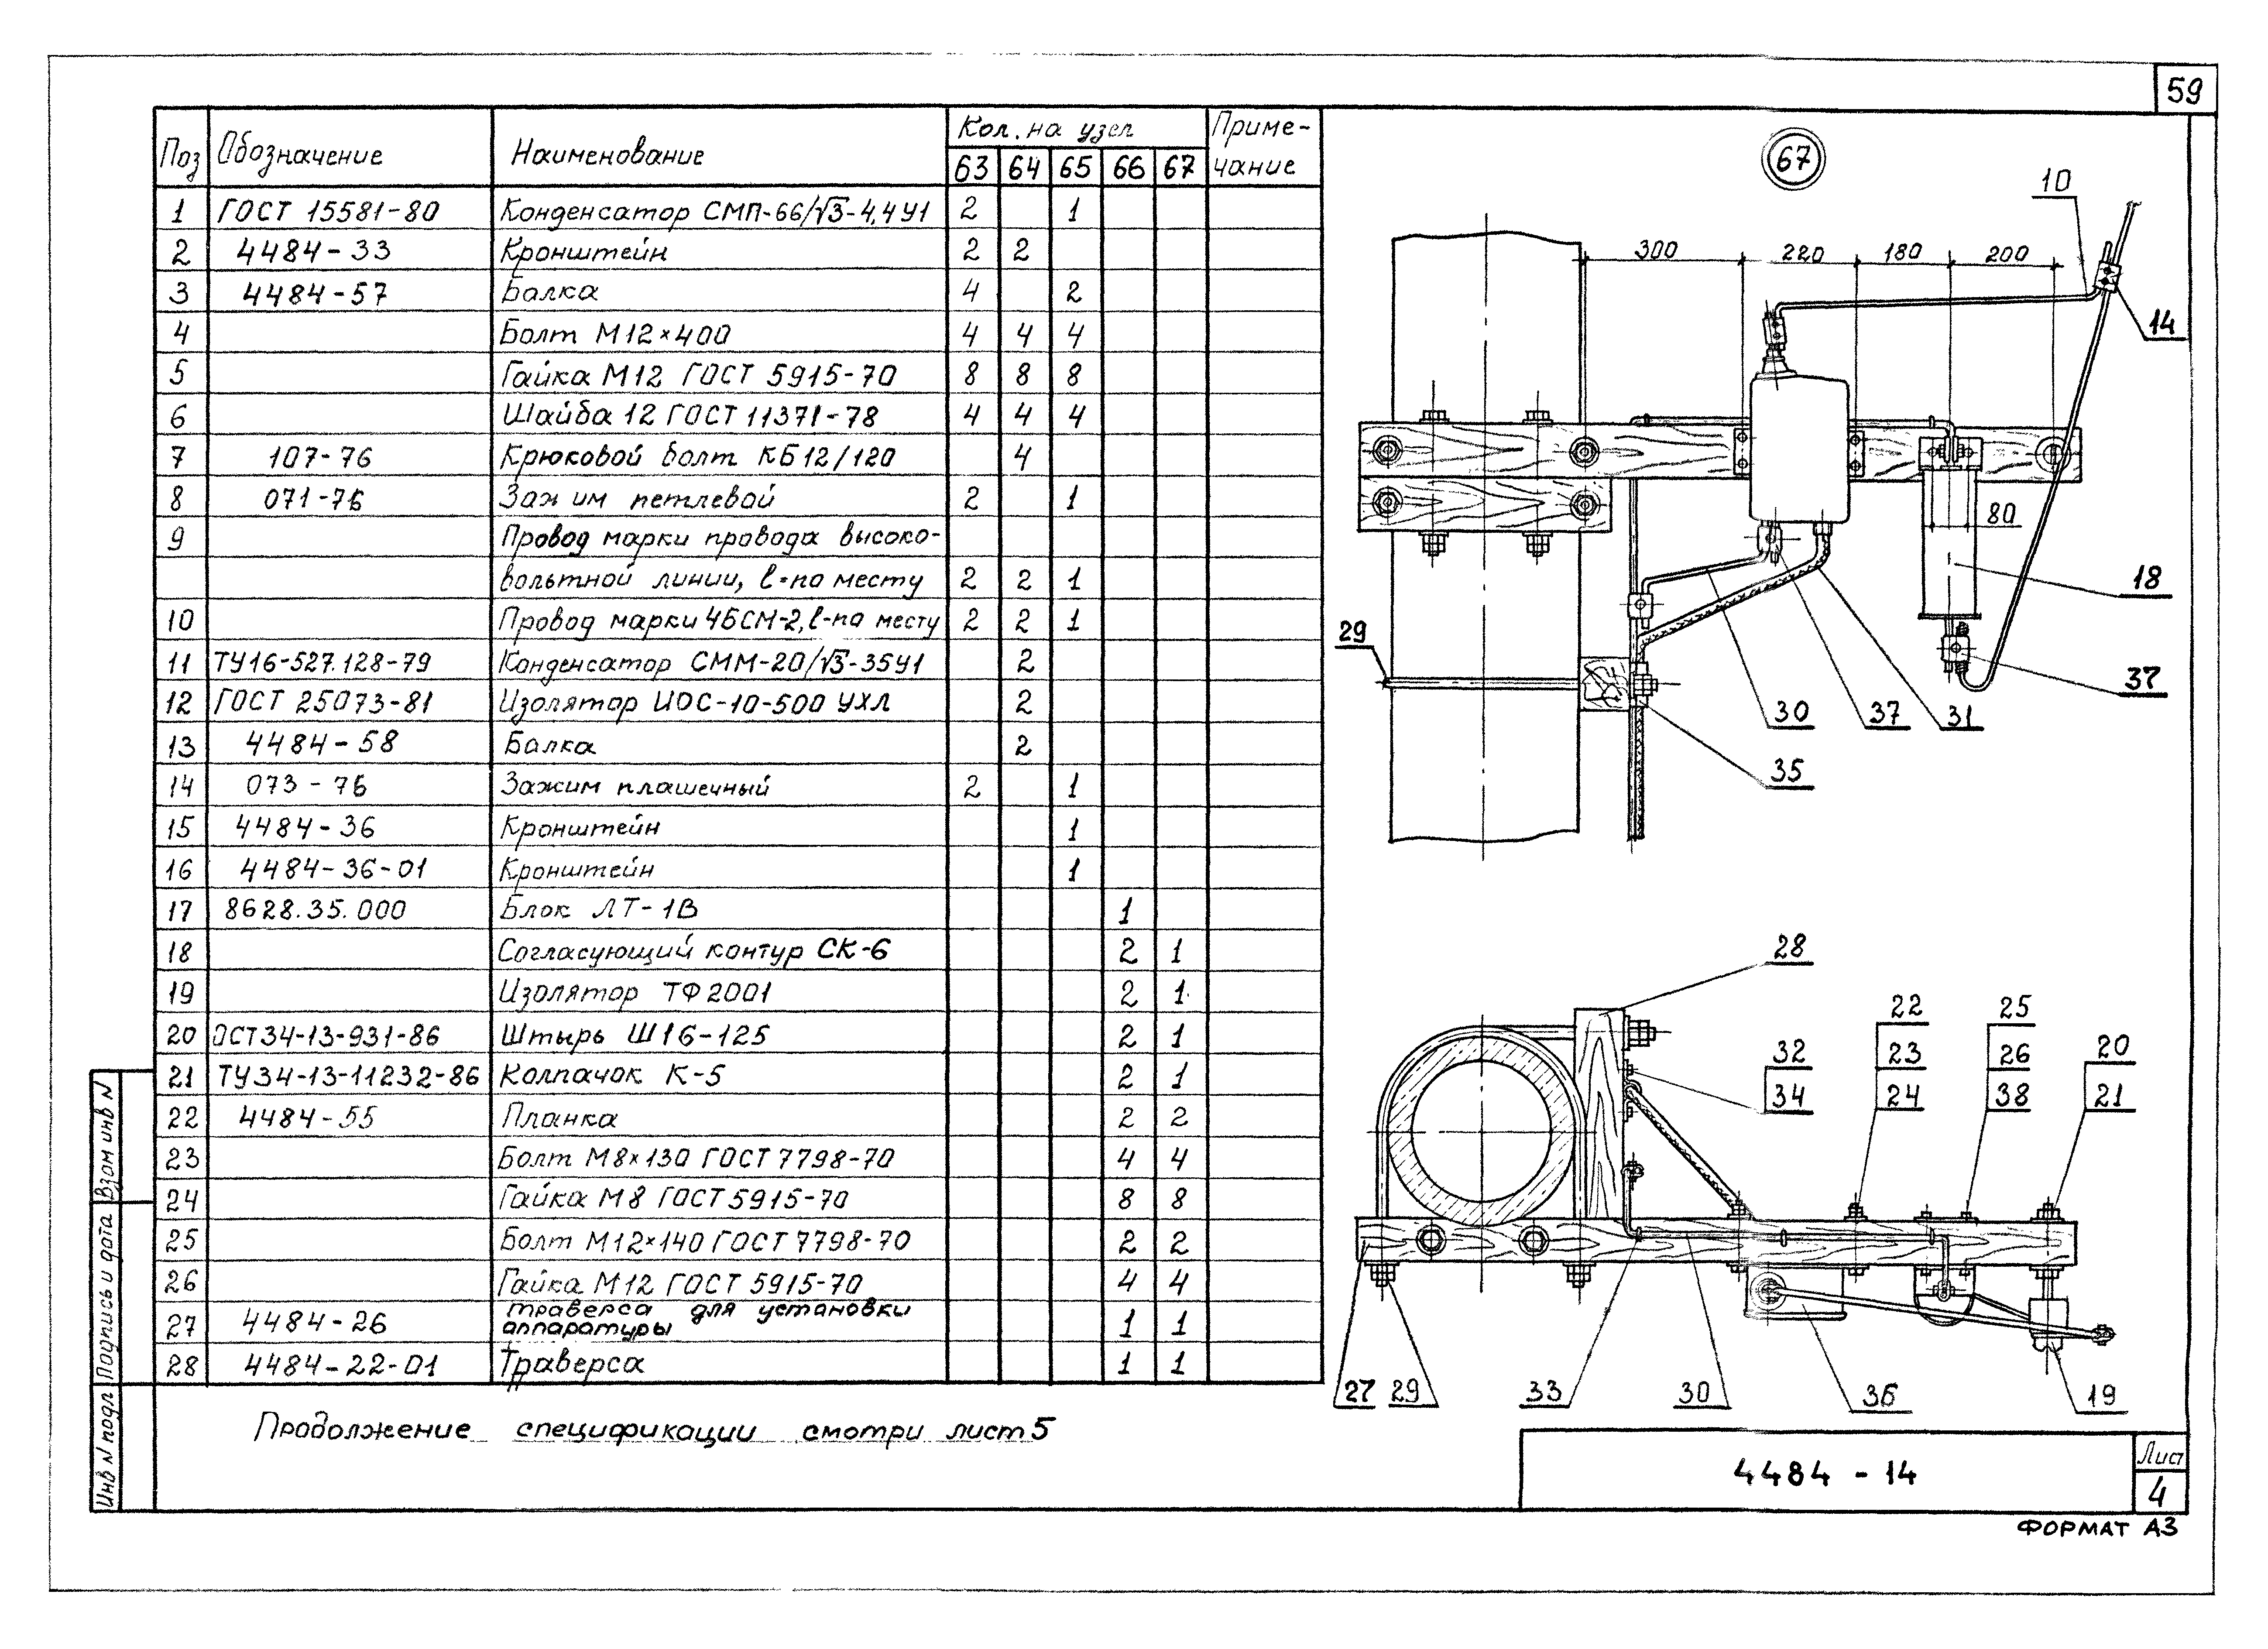 59
Поз Обозначение Наименование Кол. на узел Приме-
63 64 65 66 67 чание
1 ГОСТ 15581-80 Конденсатор СМП-66/√3-4,4У1 2 1
2 4484-33 Кронштейн 2 2
3 4484-57 Балка 4 2
4 Болт М12×400 4 4 4
5 Гайка М12 ГОСТ 5915-70 8 8 8
6 Шайба 12 ГОСТ 11371-78 4 4 4
7 107-76 Крюковой болт КБ12/120 4
8 071-76 Зажим петлевой 2 1
9 Провод марки провода высоко-
вольтной линии, l-по месту 2 2 1
10 Провод марки 4БСМ-2, l-по месту 2 2 1
11 ТУ16-527.128-79 Конденсатор СММ-20/√3-35У1 2
12 ГОСТ 25073-81 Изолятор ИОС-10-500 УХЛ 2
13 4484-58 Балка 2
14 073-76 Зажим плашечный 2 1
15 4484-36 Кронштейн 1
16 4484-36-01 Кронштейн 1
17 8628.35.000 Блок ЛТ-1В 1
18 Согласующий контур СК-6 2 1
19 Изолятор ТФ2001 2 1
20 ОСТ34-13-931-86 Штырь Ш16-125 2 1
21 ТУ34-13-11232-86 Колпачок К-5 2 1
22 4484-55 Планка 2 2
23 Болт М8×130 ГОСТ 7798-70 4 4
24 Гайка М8 ГОСТ 5915-70 8 8
25 Болт М12×140 ГОСТ 7798-70 2 2
26 Гайка М12 ГОСТ 5915-70 4 4
27 4484-26 Траверса для установки
аппаратуры 1 1
28 4484-22-01 Траверса 1 1
Продолжение спецификации смотри лист 5
67
10
300 220 180 200
14
80
18
29
37
30 37 31
35
28
22 25
32 23 26 20
34 24 38 21
27 29 33 30 36 19
4484-14
Лист
4
ФОРМАТ А3
Инв N подл Подпись и дата Взам инв N